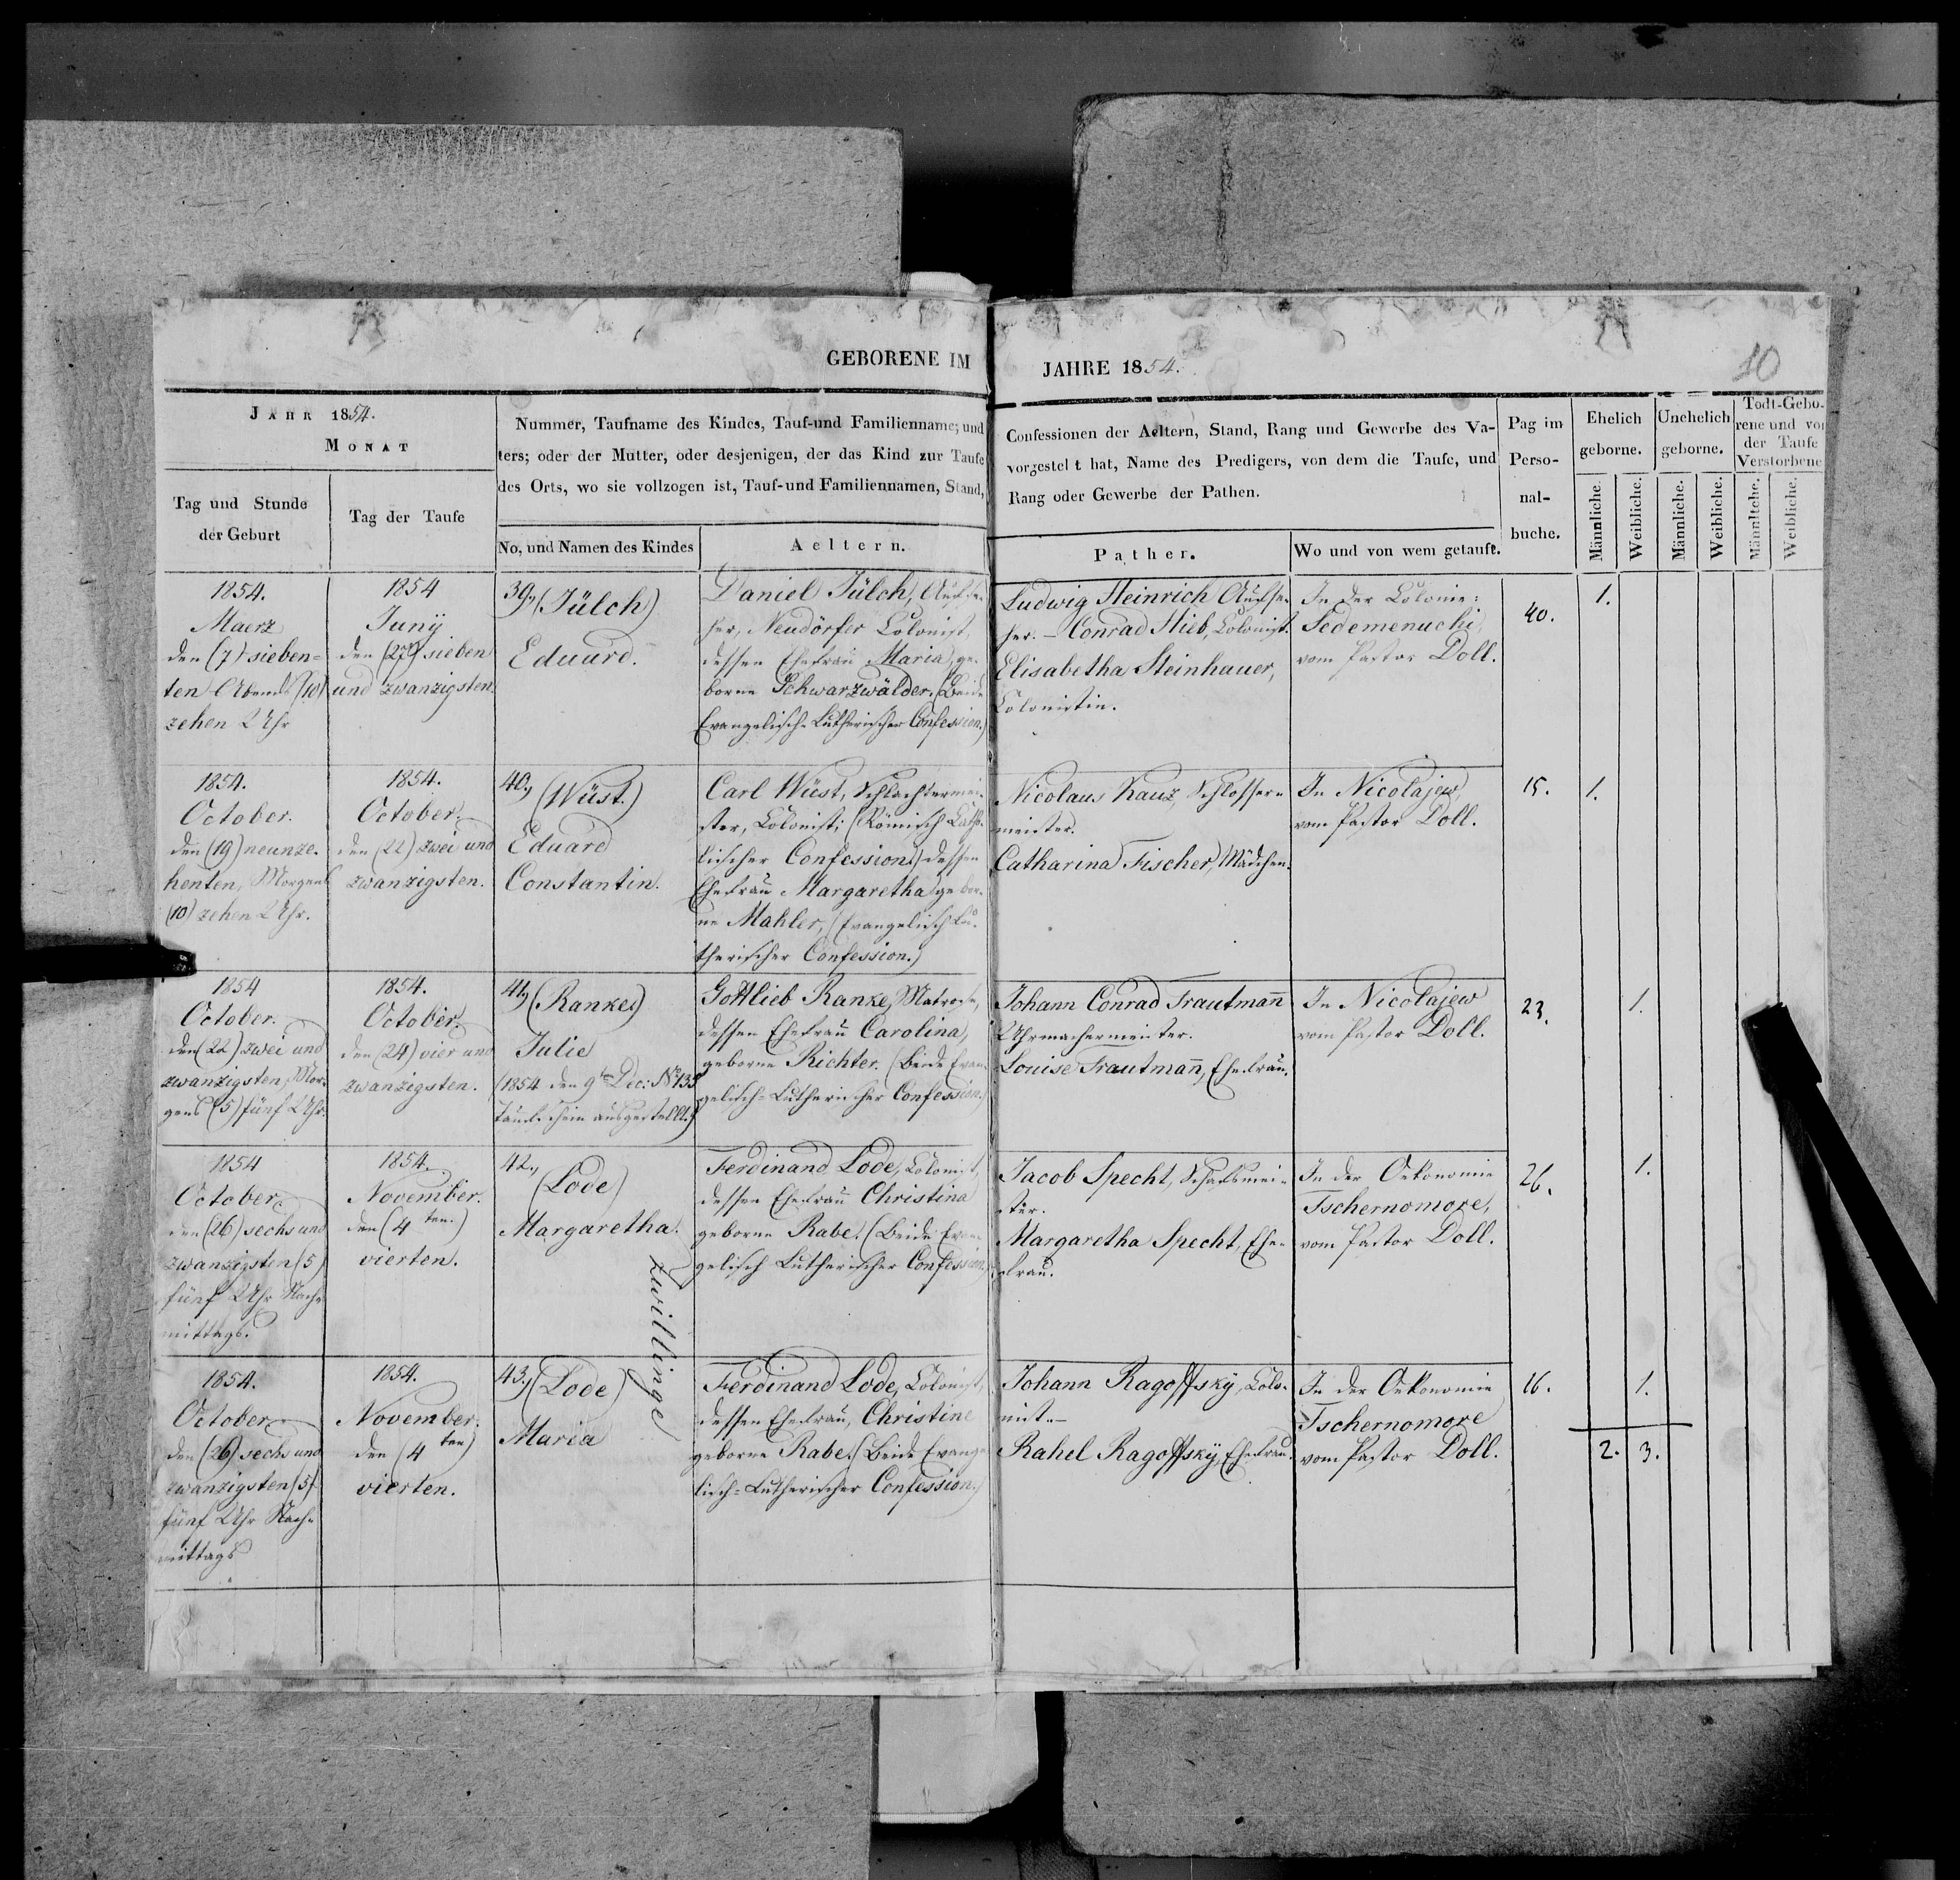 GEBORENE IM JAHRE 1854.
10
JAHR 1854.
MONAT
Tag und Stunde
der Geburt
Tag der Taufe
Nummer, Taufname des Kindes, Tauf-und Familienname; und
ters; oder der Mutter, oder desjenigen, der das Kind zur Taufe
des Orts, wo sie vollzogen ist, Tauf-und Familiennamen, Stand,
No, und Namen des Kindes
Aeltern.
Confessionen der Aeltern, Stand, Rang und Gewerbe des Va-
vorgestelt hat, Name des Predigers, von dem die Taufe, und
Rang oder Gewerbe der Pathen.
Pather.
Wo und von wem getauft.
Pag im
Perso-
nal-
buche.
Ehelich
geborne.
Unehelich
geborne.
Todt-Gebo-
rene und vor
der Taufe
Verstorbene
Männliche.
Weibliche.
Männliche.
Weibliche.
Männltche.
Weibliche.
1854.
Maerz
den (7) sieben=
ten Abends (10)
zehen Uhr
1854
Juny
den (27) sieben
und zwanzigsten.
39, (Jülch)
Eduard.
Daniel Jülch, Aufse-
her, Neudörfer Colonist,
dessen Ehefrau Maria, ge-
borne Schwarzwälder. (Beide
Evangelisch-Lutherischer Confession.)
Ludwig Heinrich Aufse-
her. - Conrad Hieb, Colonist.
Elisabetha Steinhauer,
Colonistin.
In der Colonie:
Sedemenuchi,
vom Pastor Doll.
40.
1.
1854.
October.
den (19) neunze-
henten, Morgens
(10) zehen Uhr.
1854.
October.
den (22) zwei und
zwanzigsten.
40, (Wüst.)
Eduard
Constantin.
Carl Wüst, Schlachtermei-
ster, Colonist; (Römisch Catho-
lischer Confession) dessen
Ehefrau Margaretha gebor-
ne Mahler, (Evangelisch Lu-
therischer Confession.)
Nicolaus Kauz, Schlosser-
meister.
Catharina Fischer, Mädchen.
In Nicolajew,
vom Pastor Doll.
15.
1.
1854
October.
den (22) zwei und
zwanzigsten, Mor-
gens (5) fünf Uhr.
1854.
October.
den (24) vier und
zwanzigsten.
41, (Ranke)
Julie
(1854 den 9ten Dec: No 135
Taufschein ausgestellt.)
Gottlieb Ranke, Matrose,
dessen Ehefrau Carolina,
geborne Richter. (Beide Evan-
gelisch-Lutherischer Confession.)
Johann Conrad Trautmann
Uhrmachermeister.
Louise Trautmann, Ehefrau.
In Nicolajew
vom Pastor Doll.
23.
1.
1854
October.
den (26) sechs und
zwanzigsten (5)
fünf Uhr Nach-
mittags.
1854.
November.
den (4 ten.)
vierten.
42, (Lode)
Margaretha.
zwillinge
Ferdinand Lode, Colonist,
dessen Ehefrau Christina
geborne Rabe. (Beide Evan-
gelisch Lutherischer Confession.)
Jacob Specht, Schafmei-
ster.
Margaretha Specht, Ehe-
frau.
In der Oekonomie
Tschernomore,
vom Pastor Doll.
26.
1.
1854.
October
den (26) sechs und
zwanzigsten (5)
fünf Uhr Nach-
mittags
1854.
November.
den (4 ten)
vierten.
43, (Lode)
Maria
Ferdinand Lode, Colonist,
dessen Ehefrau, Christine
geborne Rabe. (Beide Evange-
lisch-Lutherischer Confession.)
Johann Ragoffsky, Colo-
nist.-
Rahel Ragoffsky, Ehefrau.
In der Oekonomie
Tschernomore
vom Pastor Doll.
16.
1.
2. 3.